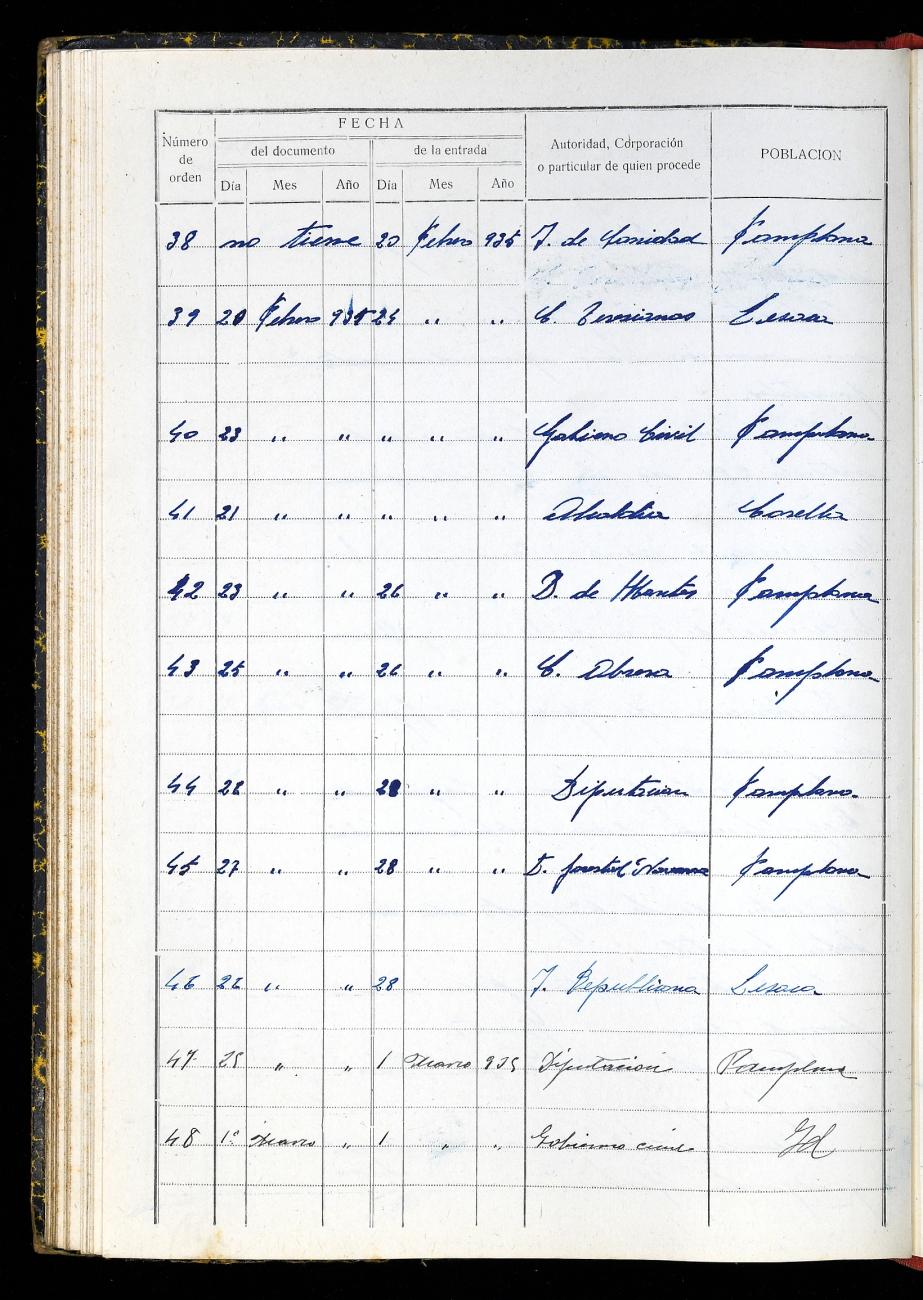 Número de orden
FECHA
del documento
de la entrada
Autoridad, Corporación
o particular de quien procede
POBLACION
Día Mes Año Día Mes Año
38 no tiene 20 Febrero 935 J. de Sanidad Pamplona
39 20 Febrero 935 24 " " C. Teresianas Lesaca
40 23 " " " " " Gobierno Civil Pamplona
41 21 " " " " " Alcaldia Corella
42 23 " " 26 " " D. de Montes Pamplona
43 25 " " 26 " " C. Abrera Pamplona
44 28 " " 28 " " Diputacion Pamplona
45 27 " " 28 " " D. forestal Navarra Pamplona
46 26 " " 28 J. Republicana Lesaca
47 25 " " 1 Marzo 935 Diputación Pamplona
48 1º Marzo " 1 " " Gobierno civil Id